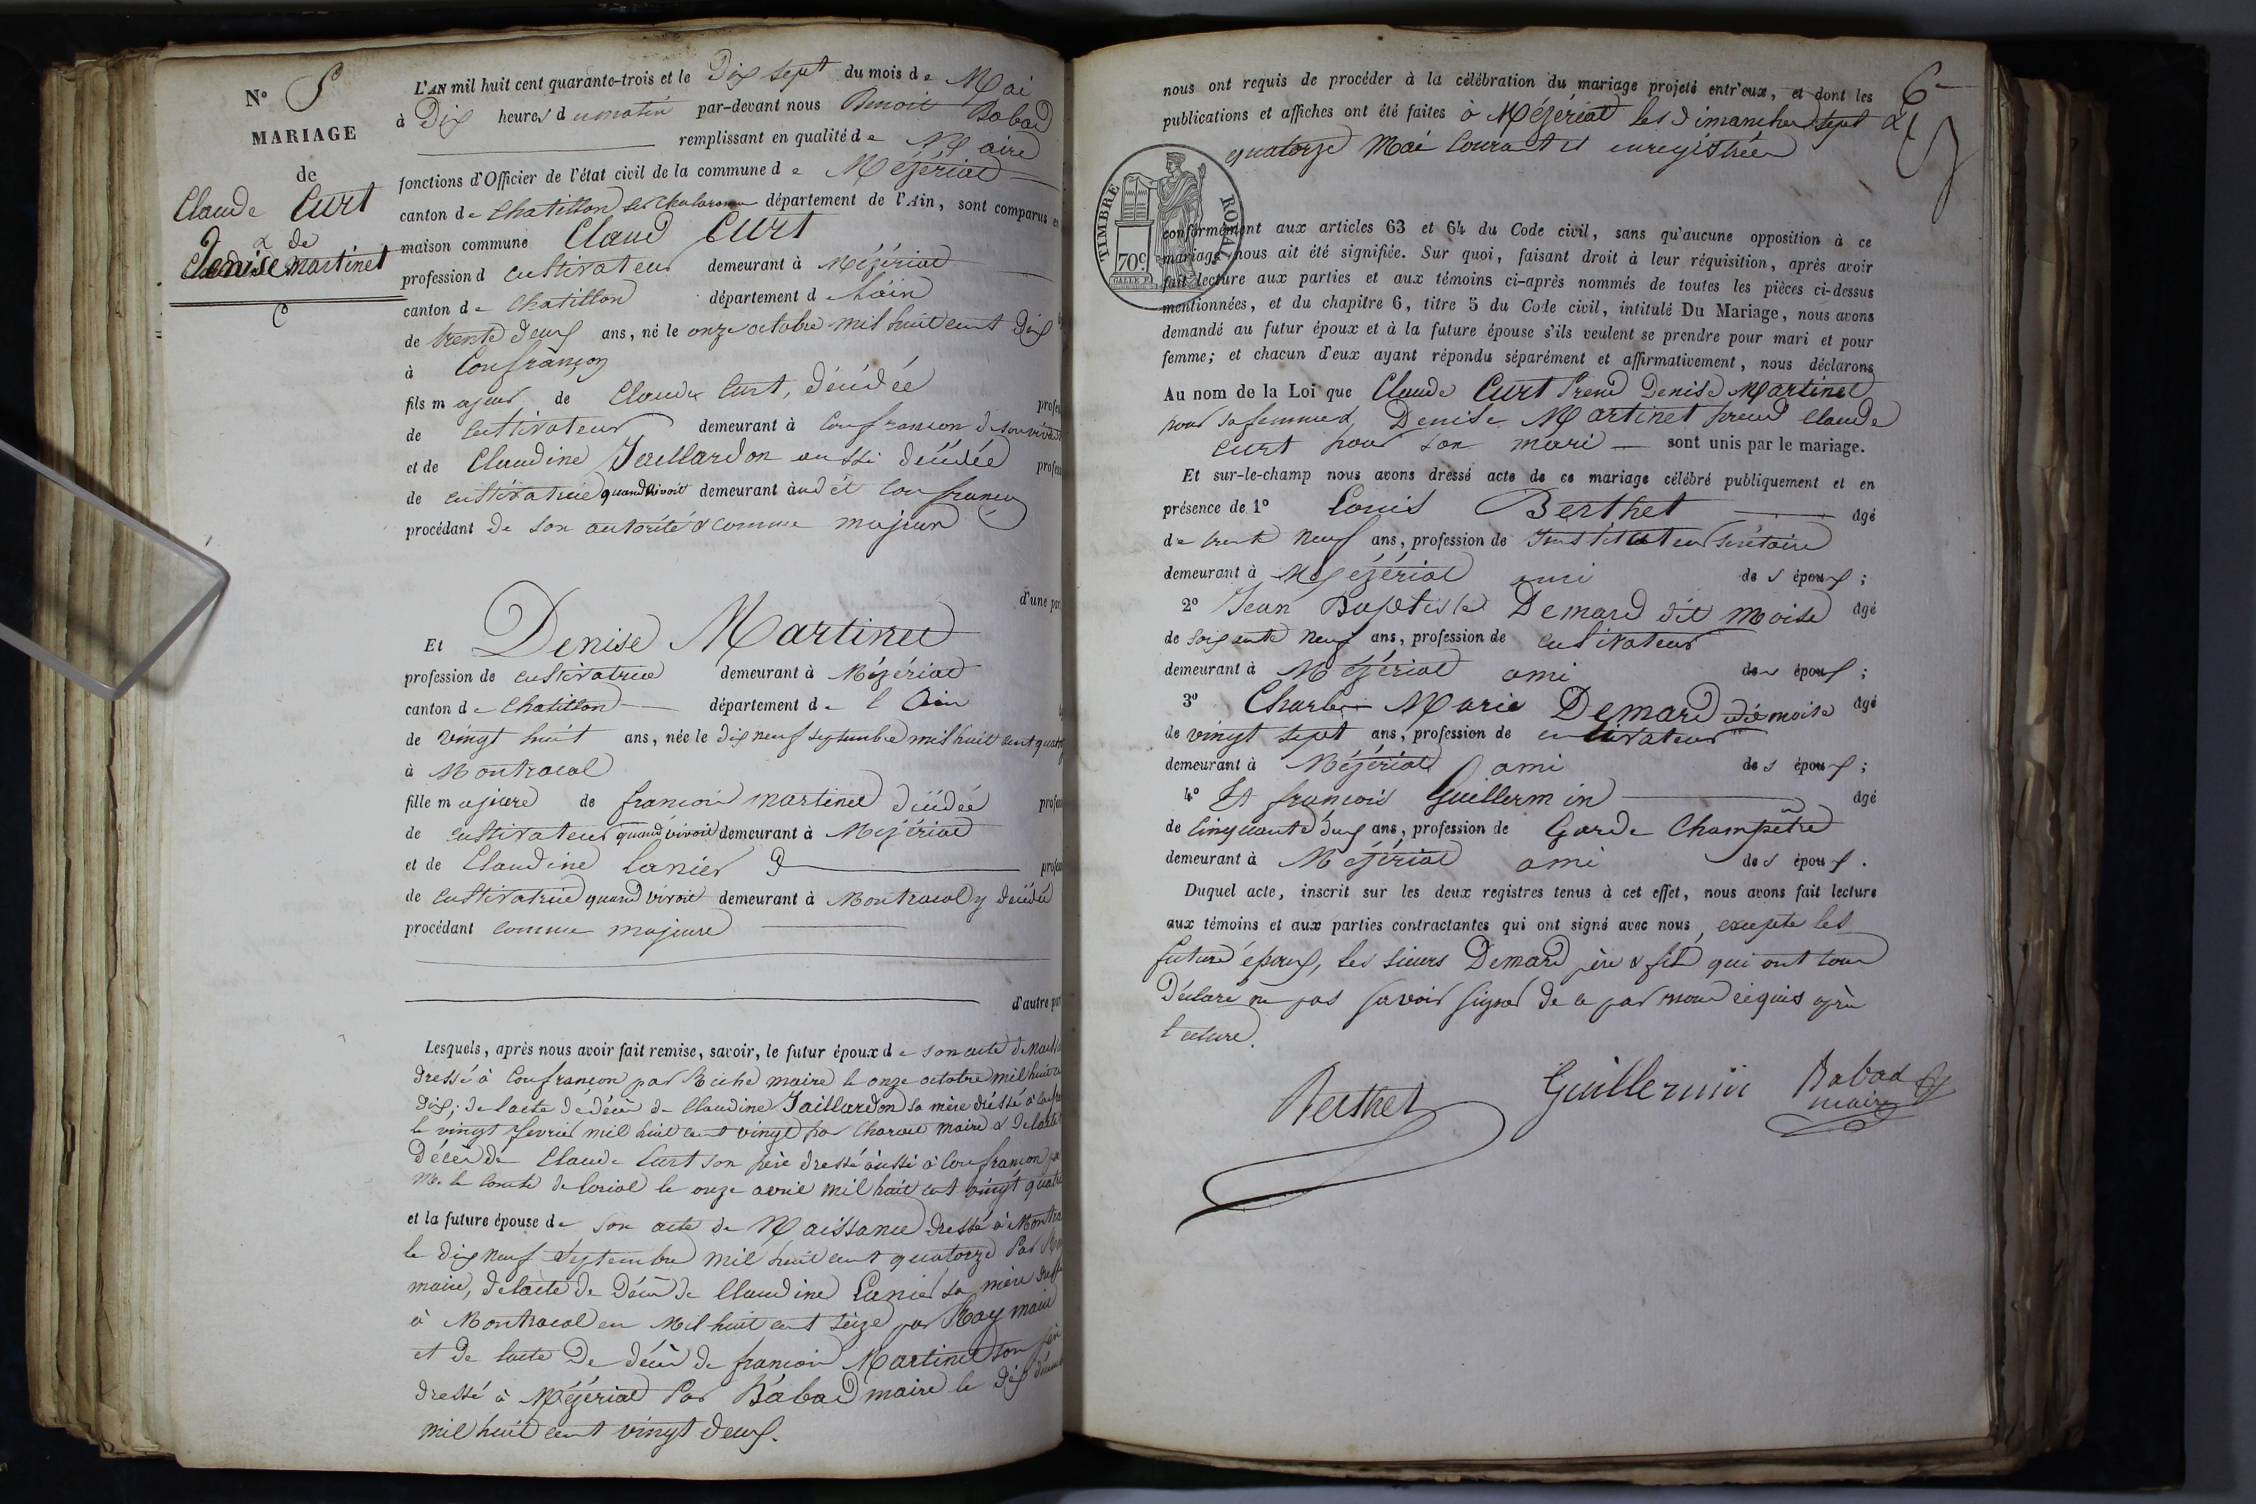 N.o 5
MARIAGE
de
Claude Curt
& de
Denise Martinet
L'AN mil huit cent quarante-trois et le Dix sept du mois de Mai
à Dix heures du matin par-devant nous Benoit Babad
remplissant en qualité de Maire
fonctions d'Officier de l'état civil de la commune de Mézériat
canton de Chatillon sur Chalaronne département de l'Ain, sont comparus en
maison commune Claud Curt
profession d cultivateur demeurant à Mézériat
canton de Chatillon département d l'ain
de trente deux ans, né le onze octobre mil huit cent Dix
à Confrançon
fils majeur de Claude Curt, décédée
profes
de cultivateur demeurant à Confrancon de son vivant
et de Claudine Jaillardon aussi décédée profess
de cultivatrice quand vivoit demeurant audit Confrançon
procédant de son autorité & comme majeur
d'une par
Et Denise Martinet
profession de cultivatrice demeurant à Mézériat
canton de Chatillon département de l'Ain
de vingt huit ans, née le dix neuf septembre mil huit cent quatorz
à Montracol
fille majeure de francois martinet décédée profess
de cultivateur quand vivoit demeurant à Mézériat
et de Claudine Lanier profess
de cultivatrice quand vivoit demeurant à Montracol y décédée
procédant comme majeure
d'autre par
Lesquels, après nous avoir fait remise, savoir, le futur époux de son acte de Naiss
dressé à Confrançon par maire le onze octobre mil huit ce
dix; de l'acte de décès de Claudine Jaillardon sa mère dressé à Conf
le vingt fevrier mil huit cent vingt par maire & de l'acte
décès de Claude Curt son père dressé aussi à Confrancon pa
M. le Comte de Loriol le onze avril mil huit cent vingt quatre
et la future épouse de son acte de Naissance dressé à Montra
le dix neuf Septembre mil huit cent quatorze Par
maire, de l'acte de décès de Claudine Lanier sa mère dressé
à Montracol en Mil huit cent seize par Ray maire
et de l'acte de décès de francois Martinet son père
dressé à Mézériat Par Babad maire le dix
mil huit cent vingt deux.
6
nous ont requis de procéder à la célébration du mariage projeté entr'eux, et dont les
publications et affiches ont été faites à Mézériat les dimanches sept &
quatorze Mai Courant et enregistrées
TIMBRE ROYAL
70c
conformément aux articles 63 et 64 du Code civil, sans qu'aucune opposition à ce
mariage nous ait été signifiée. Sur quoi, faisant droit à leur réquisition, après avoir
fait lecture aux parties et aux témoins ci-après nommés de toutes les pièces ci-dessus
mentionnées, et du chapitre 6, titre 5 du Code civil, intitulé Du Mariage, nous avons
demandé au futur époux et à la future épouse s'ils veulent se prendre pour mari et pour
femme; et chacun d'eux ayant répondu séparément et affirmativement, nous déclarons
Au nom de la Loi que Claude Curt Prend Denise Martinet
pour sa femme & Denise Martinet prend Claude
Curt pour son mari sont unis par le mariage.
Et sur-le-champ nous avons dressé acte de ce mariage célébré publiquement et en
présence de 1o Louis Berthet âgé
de trente Neuf ans, profession de Instituteur Sécretaire
demeurant à Mézériat ami des époux;
2o Jean Baptiste Demard dit Moise âgé
de soixante neuf ans, profession de cultivateur
demeurant à Mézériat ami des époux;
3o Charles Marie Demard dit moise âgé
de vingt sept ans, profession de cultivateur
demeurant à Mézériat ami des époux;
4o Et francois Guillermin âgé
de Cinquante deux ans, profession de Garde Champêtre
demeurant à Mézériat ami des époux.
Duquel acte, inscrit sur les deux registres tenus à cet effet, nous avons fait lecture
aux témoins et aux parties contractantes qui ont signé avec nous, excepte les
futurs époux, les Sieurs Demard père & fils qui ont tous
déclaré ne pas savoir signer de ce par nous requis après
lecture.
Berthet Guillermin Babad
maire